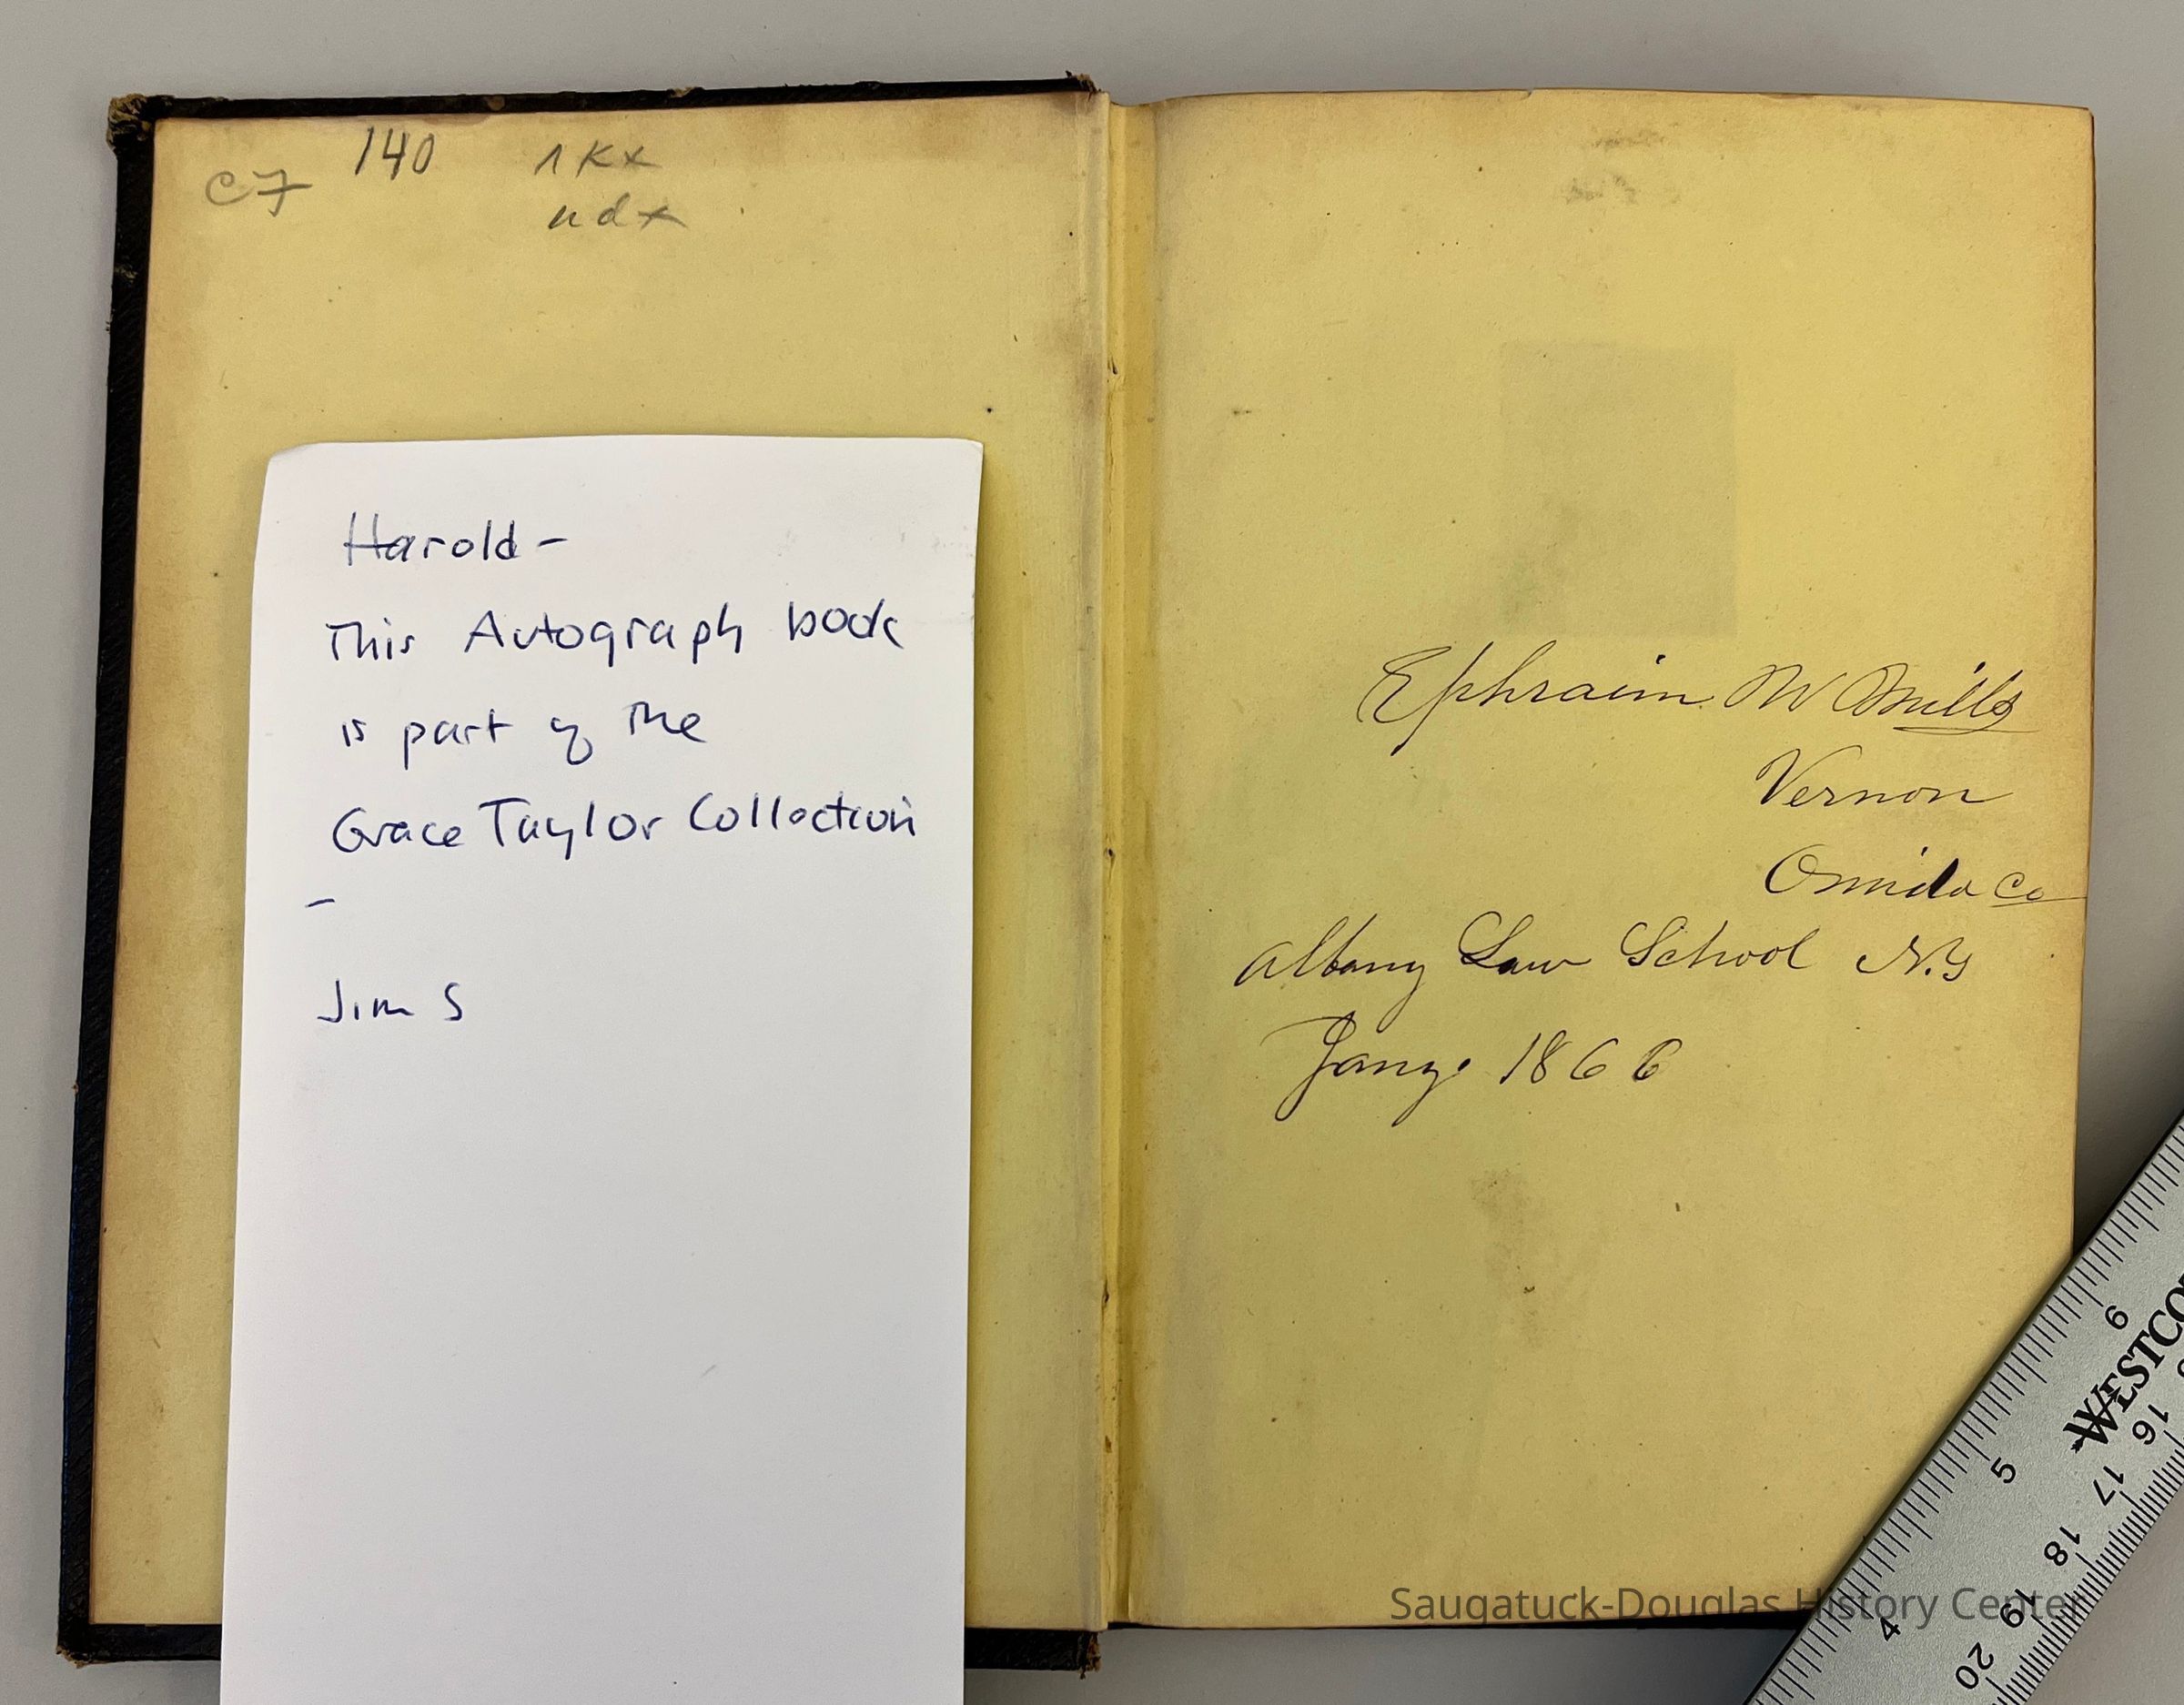 140
C7
nkx
ndx
Harold-
This Autograph book
is part of the
Grace Taylor Collection
-
Jim S
Ephraim W Mills
Vernon
Oneida Co
Albany Law School N.Y
Jany. 1866
WESTCO
6
5
4
16
17
18
19
20
Saugatuck-Douglas History Center